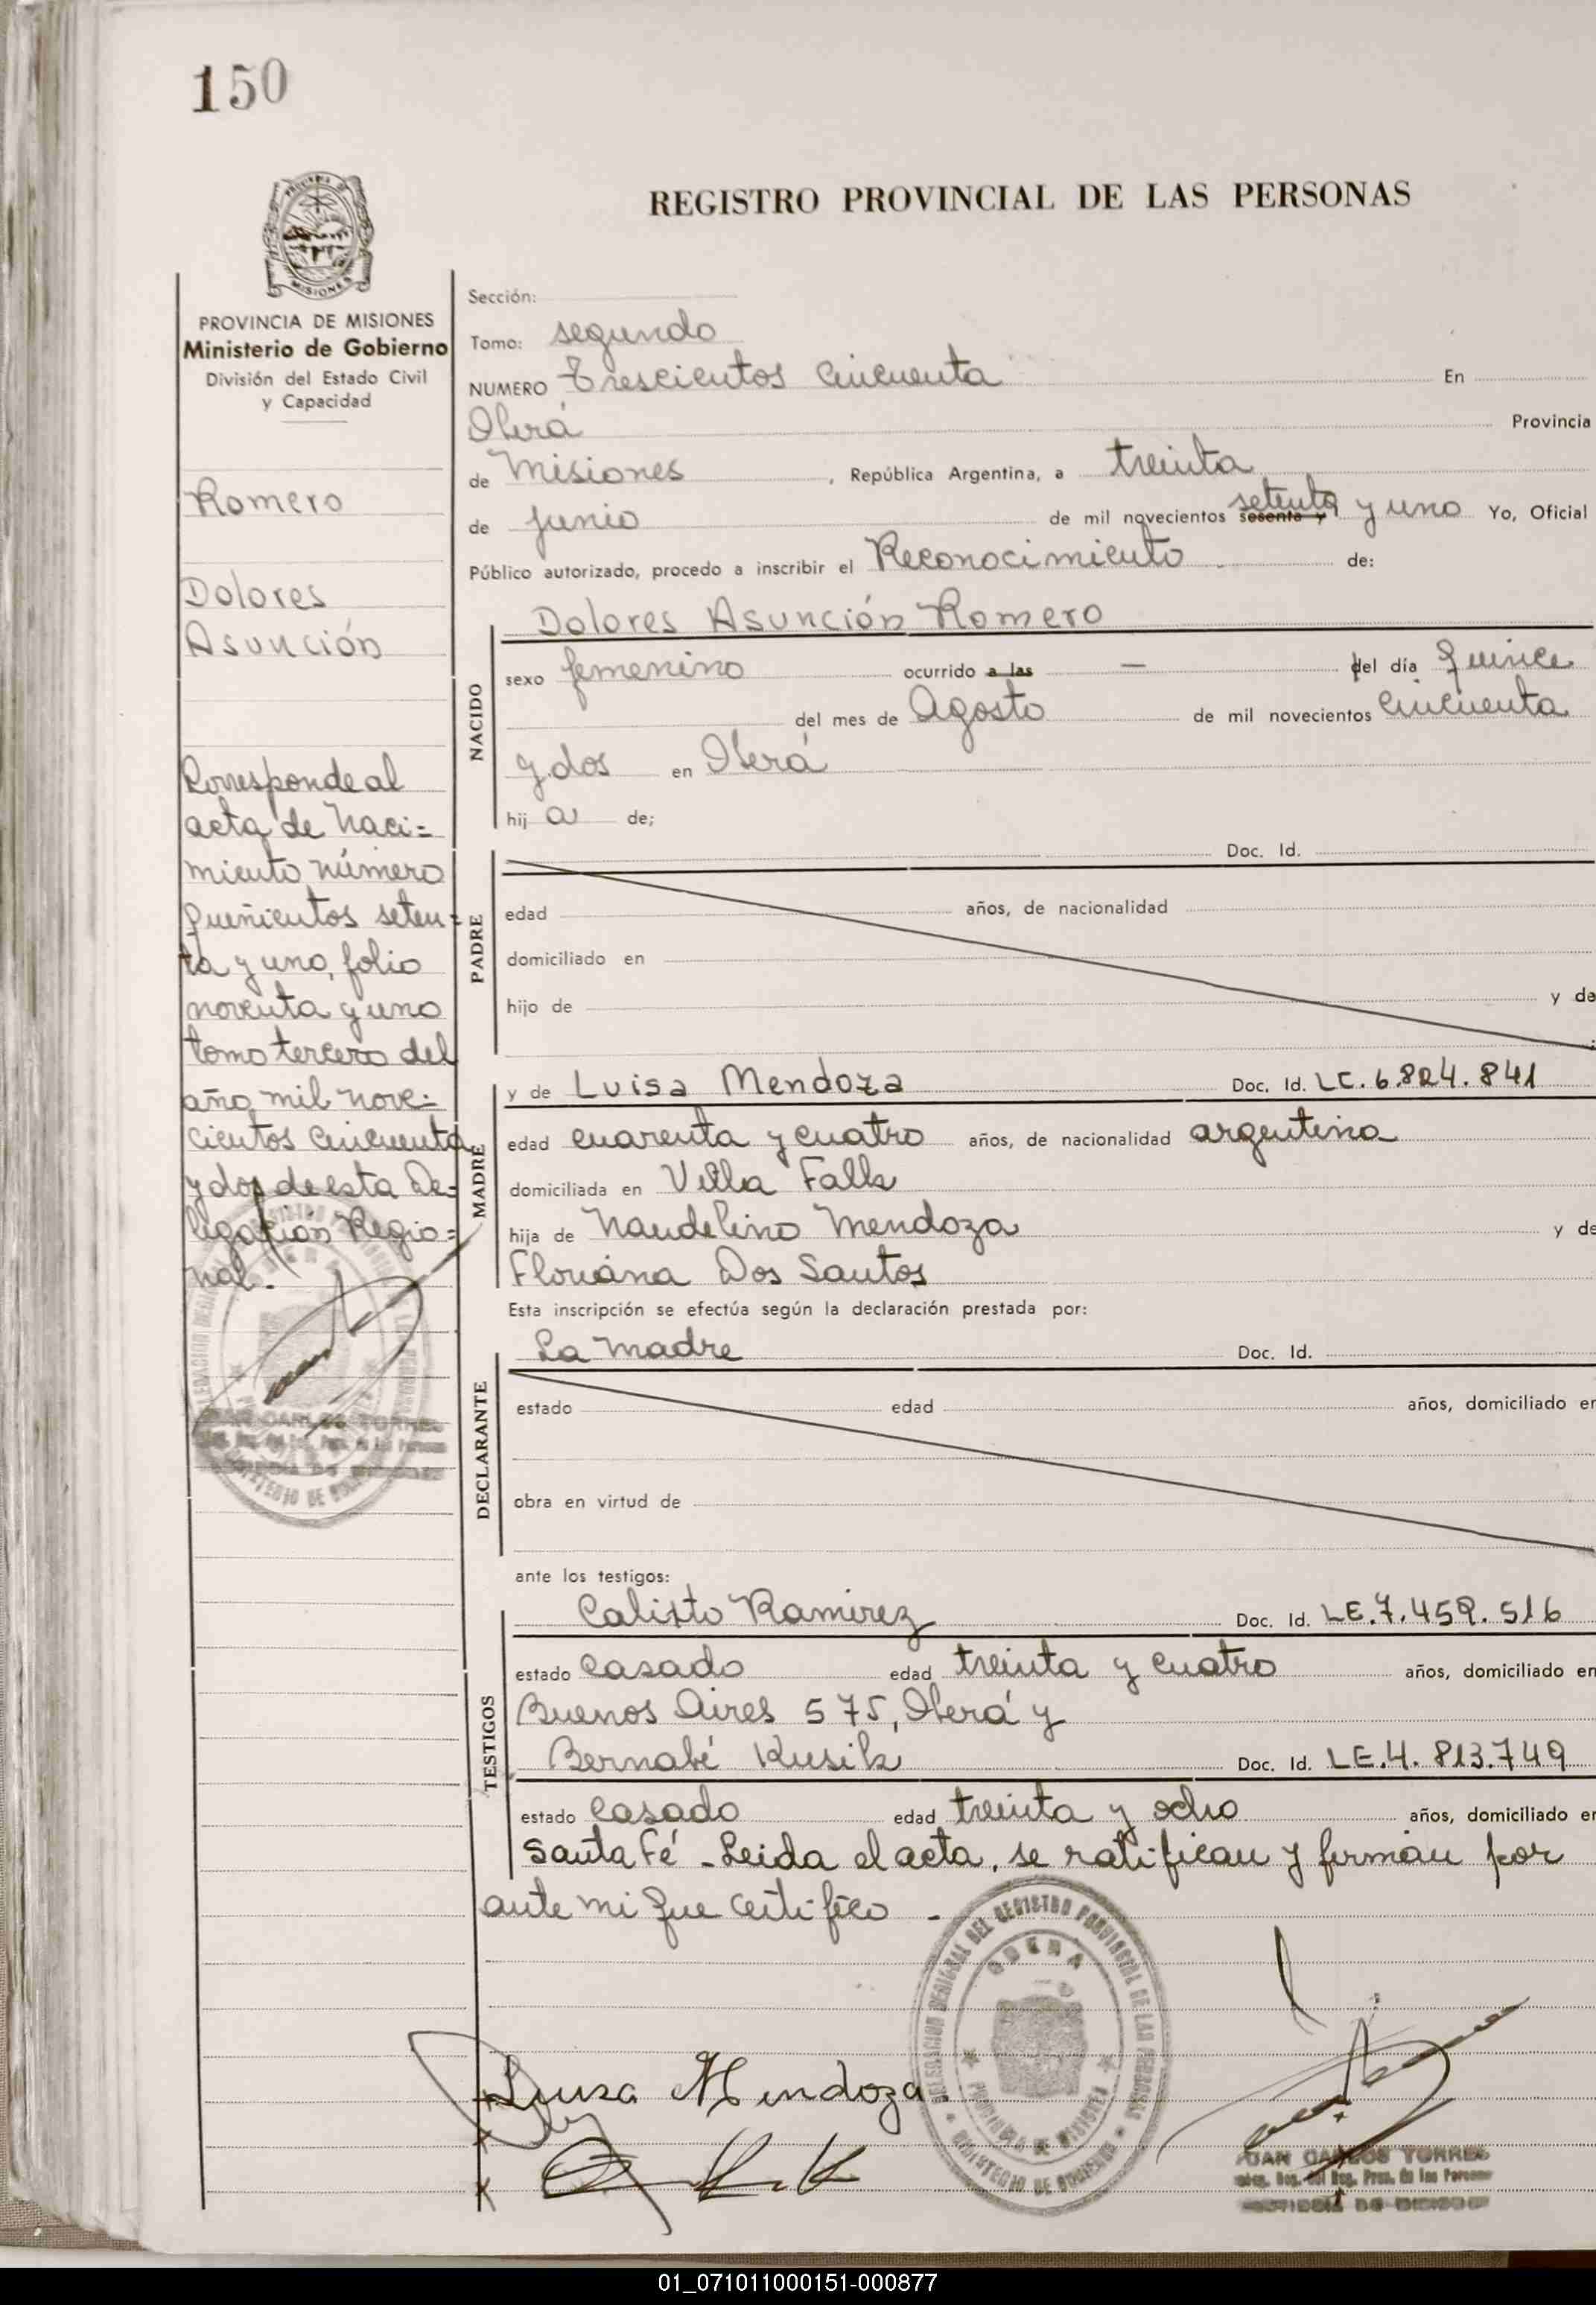 150
REGISTRO PROVINCIAL DE LAS PERSONAS
MISIONES
PROVINCIA DE MISIONES
Ministerio de Gobierno
División del Estado Civil
y Capacidad
Romero
Dolores
Asunción
Corresponde al
acta de naci=
miento número
quinientos seten-
ta y uno, folio
noventa y uno
tomo tercero del
año mil nove=
cientos cincuenta
y dos de esta De=
legación Regio=
nal.-
JUAN CARLOS TORRES
Sección:
Tomo: segundo
NUMERO Trescientos cincuenta En
Oberá Provincia
de Misiones, República Argentina, a treinta
de junio de mil novecientos sesenta y setenta y uno Yo, Oficial
Público autorizado, procedo a inscribir el Reconocimiento de:
NACIDO
Dolores Asunción Romero
sexo femenino ocurrido a las — del día quince
del mes de Agosto de mil novecientos cincuenta
y dos en Oberá
hij a de;
PADRE
Doc. Id.
edad años, de nacionalidad
domiciliado en
hijo de y de
MADRE
y de Luisa Mendoza Doc. Id. LC. 6.824.841
edad cuarenta y cuatro años, de nacionalidad argentina
domiciliada en Villa Falk
hija de Naudelino Mendoza y de
Floriana Dos Santos
Esta inscripción se efectúa según la declaración prestada por:
DECLARANTE
La madre Doc. Id.
estado edad años, domiciliado en
obra en virtud de
ante los testigos:
TESTIGOS
Calixto Ramirez Doc. Id. LE.7.459.516
estado casado edad treinta y cuatro años, domiciliado en
Buenos Aires 575, Oberá y
Bernabé Kusik Doc. Id. LE.4.813.749
estado casado edad treinta y ocho años, domiciliado en
Santa Fé - Leida el acta, se ratifican y firman por
ante mi que certifico -
DELEGACION REGIONAL DEL REGISTRO PROVINCIAL DE LAS PERSONAS
OBERA
PROVINCIA DE MISIONES
MINISTERIO DE GOBIERNO
Luisa Mendoza
JUAN CARLOS TORRES
01_071011000151-000877